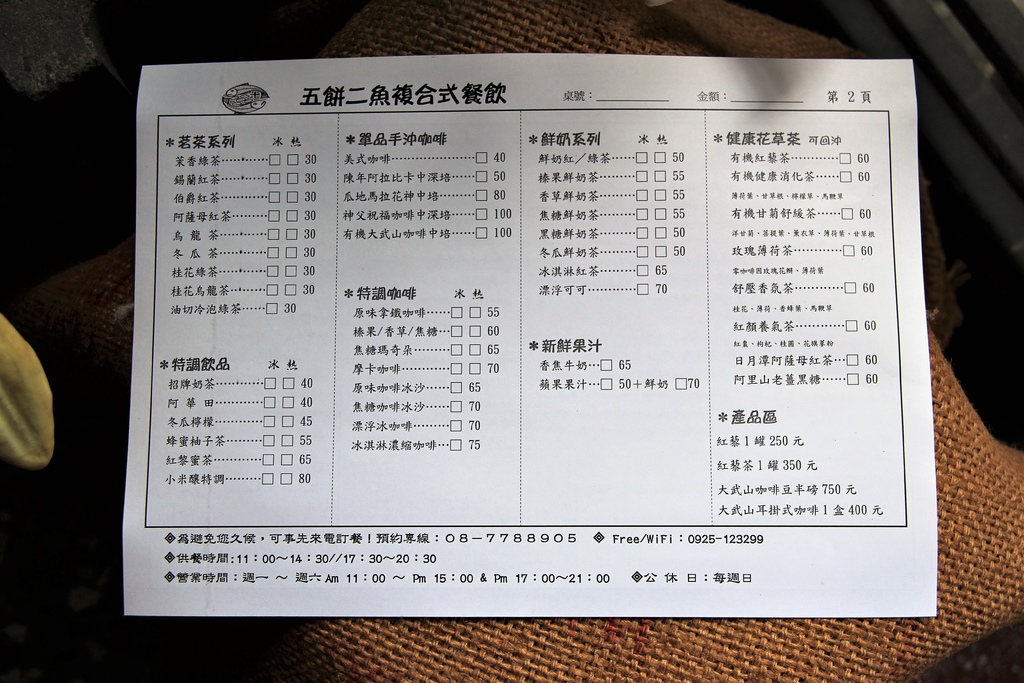 五餅二魚複合式餐飲
桌號：__________ 金額：__________ 第 2 頁
＊茗茶系列 冰 熱
茉香綠茶……□ □ 30
錫蘭紅茶……□ □ 30
伯爵紅茶……□ □ 30
阿薩母紅茶……□ □ 30
烏 龍 茶……□ □ 30
冬 瓜 茶……□ □ 30
桂花綠茶……□ □ 30
桂花烏龍茶……□ □ 30
油切冷泡綠茶……□ 30
＊特調飲品 冰 熱
招牌奶茶……□ □ 40
阿 華 田……□ □ 40
冬瓜檸檬……□ □ 45
蜂蜜柚子茶……□ □ 55
紅黎蜜茶……□ □ 65
小米釀特調……□ □ 80
＊單品手沖咖啡
美式咖啡……□ 40
陳年阿拉比卡中深培……□ 50
瓜地馬拉花神中培……□ 80
神父祝福咖啡中深培……□ 100
有機大武山咖啡中培……□ 100
＊特調咖啡 冰 熱
原味拿鐵咖啡……□ □ 55
榛果/香草/焦糖…□ □ 60
焦糖瑪奇朵……□ □ 65
摩卡咖啡……□ □ 70
原味咖啡冰沙……□ 65
焦糖咖啡冰沙……□ 70
漂浮冰咖啡……□ 70
冰淇淋濃縮咖啡…□ 75
＊鮮奶系列 冰 熱
鮮奶紅／綠茶……□ □ 50
榛果鮮奶茶……□ □ 55
香草鮮奶茶……□ □ 55
焦糖鮮奶茶……□ □ 55
黑糖鮮奶茶……□ □ 50
冬瓜鮮奶茶……□ □ 50
冰淇淋紅茶……□ 65
漂浮可可……□ 70
＊新鮮果汁
香焦牛奶…□ 65
蘋果果汁…□ 50＋鮮奶 □70
＊健康花草茶 可回沖
有機紅藜茶……□ 60
有機健康消化茶……□ 60
薄荷葉、甘草根、檸檬草、馬鞭草
有機甘菊舒緩茶……□ 60
洋甘菊、菩提葉、薰衣草、薄荷葉、甘草根
玫瑰薄荷茶……□ 60
零咖啡因玫瑰花瓣、薄荷葉
舒壓香氛茶……□ 60
桂花、薄荷、香蜂葉、馬鞭草
紅顏養氣茶……□ 60
紅棗、枸杞、桂圓、花旗蔘粉
日月潭阿薩母紅茶…□ 60
阿里山老薑黑糖……□ 60
＊產品區
紅藜 1 罐 250 元
紅藜茶 1 罐 350 元
大武山咖啡豆半磅 750 元
大武山耳掛式咖啡 1 盒 400 元
◈為避免您久候，可事先來電訂餐！預約專線：０８－７７８８９０５ ◈ Free/WiFi：0925-123299
◈供餐時間:11：00～14：30//17：30～20：30
◈營業時間：週一 ～ 週六 Am 11：00 ～ Pm 15：00 & Pm 17：00～21：00 ◈公 休 日：每週日